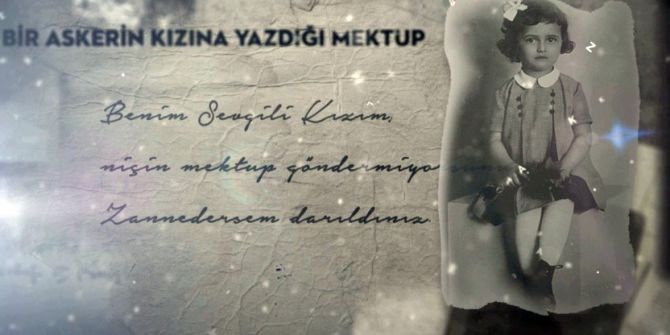 BİR ASKERİN KIZINA YAZDIĞI MEKTUP
Benim Sevgili Kızım,
niçin mektup göndermiyo
Zannedersem darıldınız.